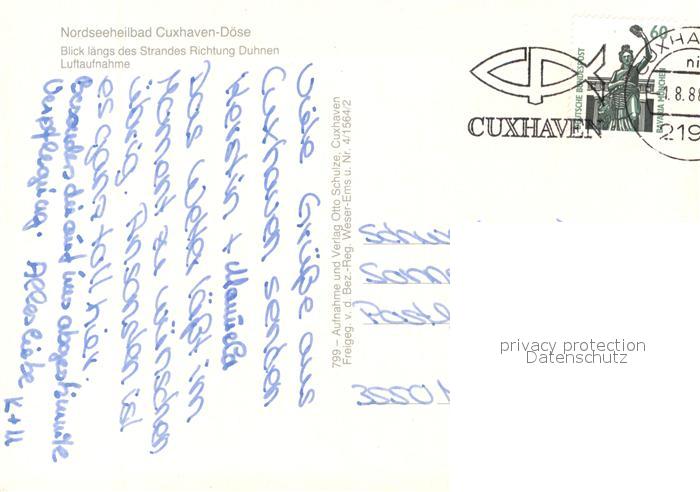 Nordseeheilbad Cuxhaven-Döse
Blick längs des Strandes Richtung Duhnen
Luftaufnahme
Viele Grüße aus
Cuxhaven senden
Kerstin + Manuela
Das Wetter läßt im
Moment zu wünschen
übrig. Ansonsten ist
es ganz toll hier.
Besonders die auf uns abgestimmte
Verpflegung. Alles liebe K+M
799 – Aufnahme und Verlag Otto Schulze, Cuxhaven
Freigeg. v. d. Bez.-Reg. Weser-Ems u. Nr. 4/1564/2
CUXHAVEN
60
DEUTSCHE BUNDESPOST
BAVARIA MÜNCHEN
XHA
ni
.8.88
219
Schw
Sann
Paste
3550 M
privacy protection
Datenschutz